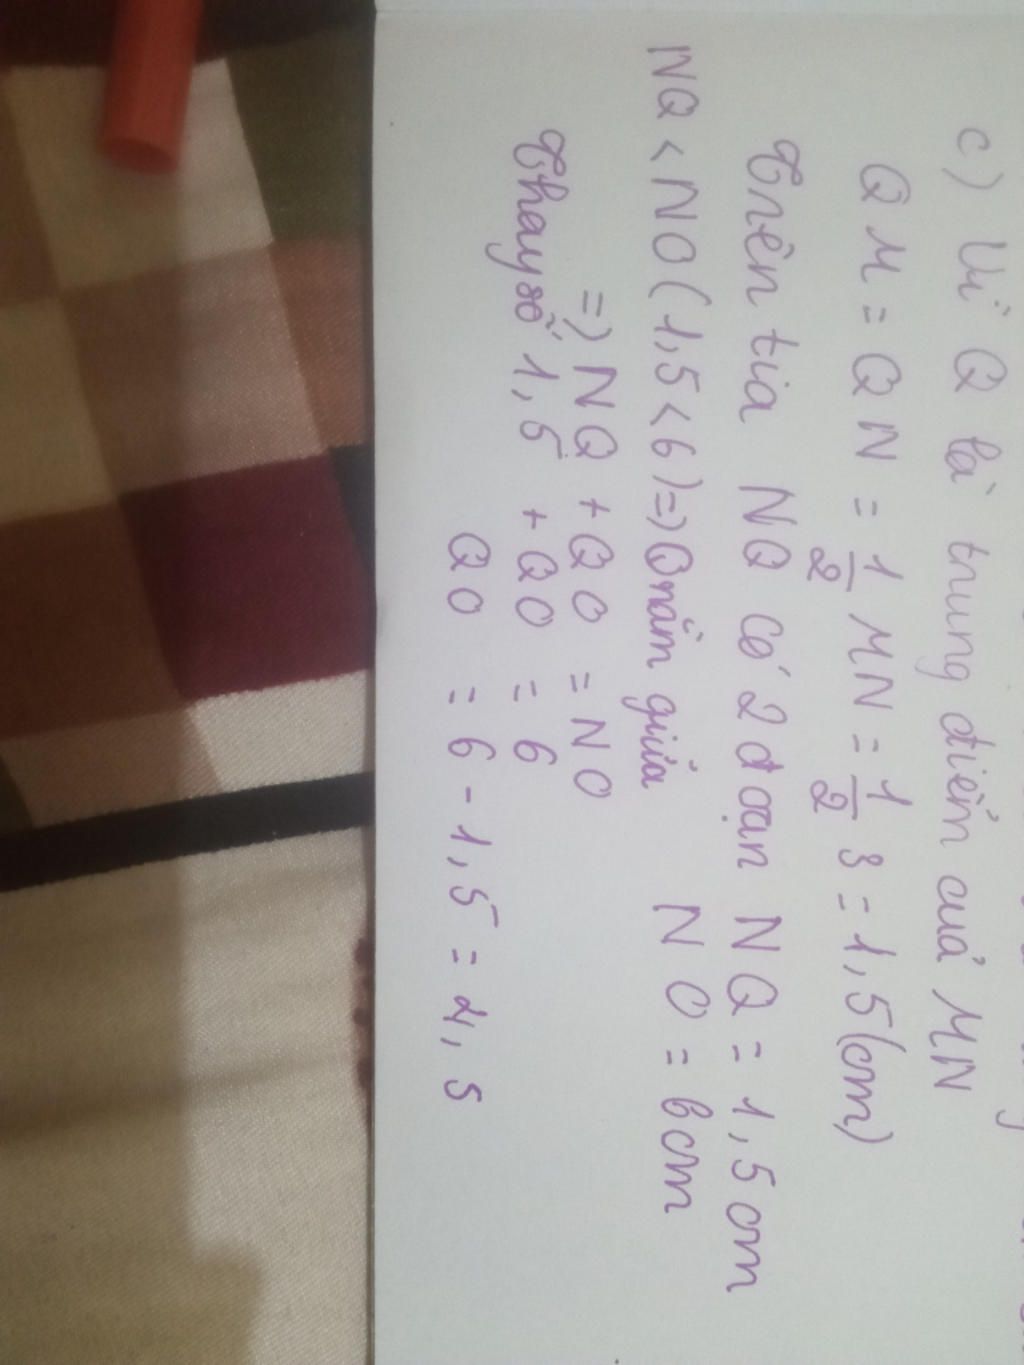 c) Vì Q là trung điểm của MN
QM = QN = 1/2 MN = 1/2 3 = 1,5(cm)
Trên tia NQ có 2 đoạn NQ = 1,5cm
NO = 6cm
NQ < NO (1,5 < 6) => Q nằm giữa
=> NQ + QO = NO
Thay số 1,5 + QO = 6
QO = 6 - 1,5 = 4,5